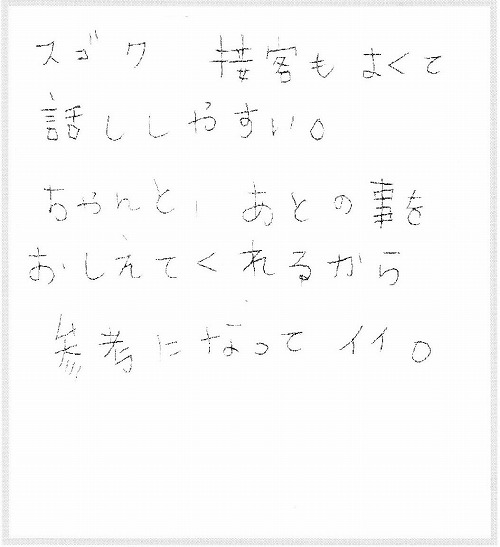 スゴク 接客もよくて
話ししやすい。
ちゃんと、あとの事を
おしえてくれるから
参考になってイイ。